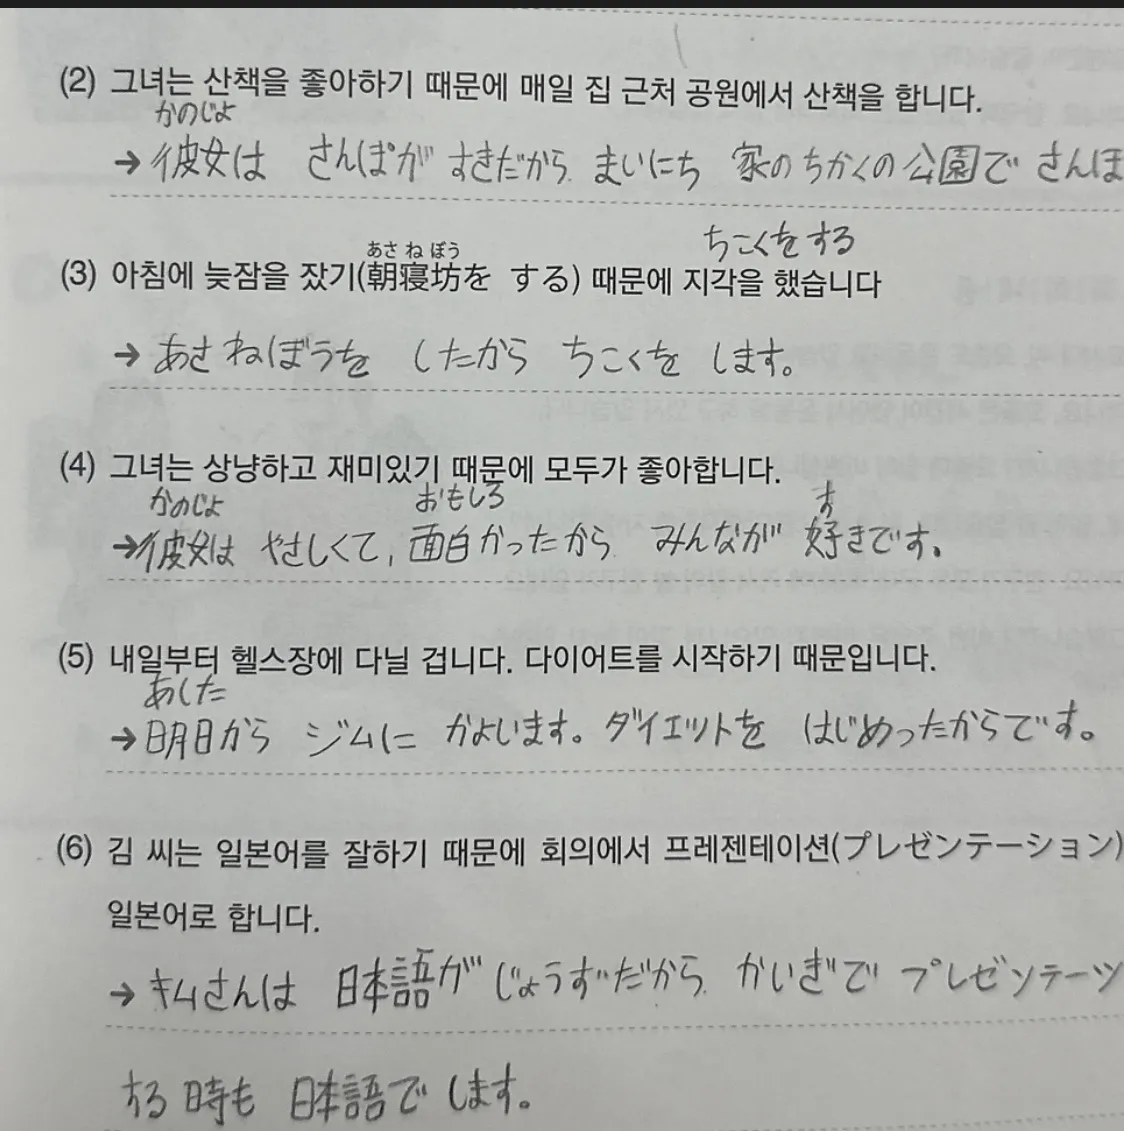 (2) 그녀는 산책을 좋아하기 때문에 매일 집 근처 공원에서 산책을 합니다.
かのじょ
→ 彼女は さんぽが すきだから まいにち 家のちかくの公園で さんぽ
ちこくをする
あさ ね ぼう
(3) 아침에 늦잠을 잤기(朝寝坊を する) 때문에 지각을 했습니다
→ あさねぼうを したから ちこくを します。
(4) 그녀는 상냥하고 재미있기 때문에 모두가 좋아합니다.
かのじょ おもしろ す
→彼女は やさしくて, 面白かったから みんなが 好きです。
(5) 내일부터 헬스장에 다닐 겁니다. 다이어트를 시작하기 때문입니다.
あした
→ 明日から ジムに かよいます。ダイエットを はじめったからです。
(6) 김 씨는 일본어를 잘하기 때문에 회의에서 프레젠테이션(プレゼンテーション)
일본어로 합니다.
→ キムさんは 日本語が じょうずだから かいぎで プレゼンテーツ
する時も 日本語で します。